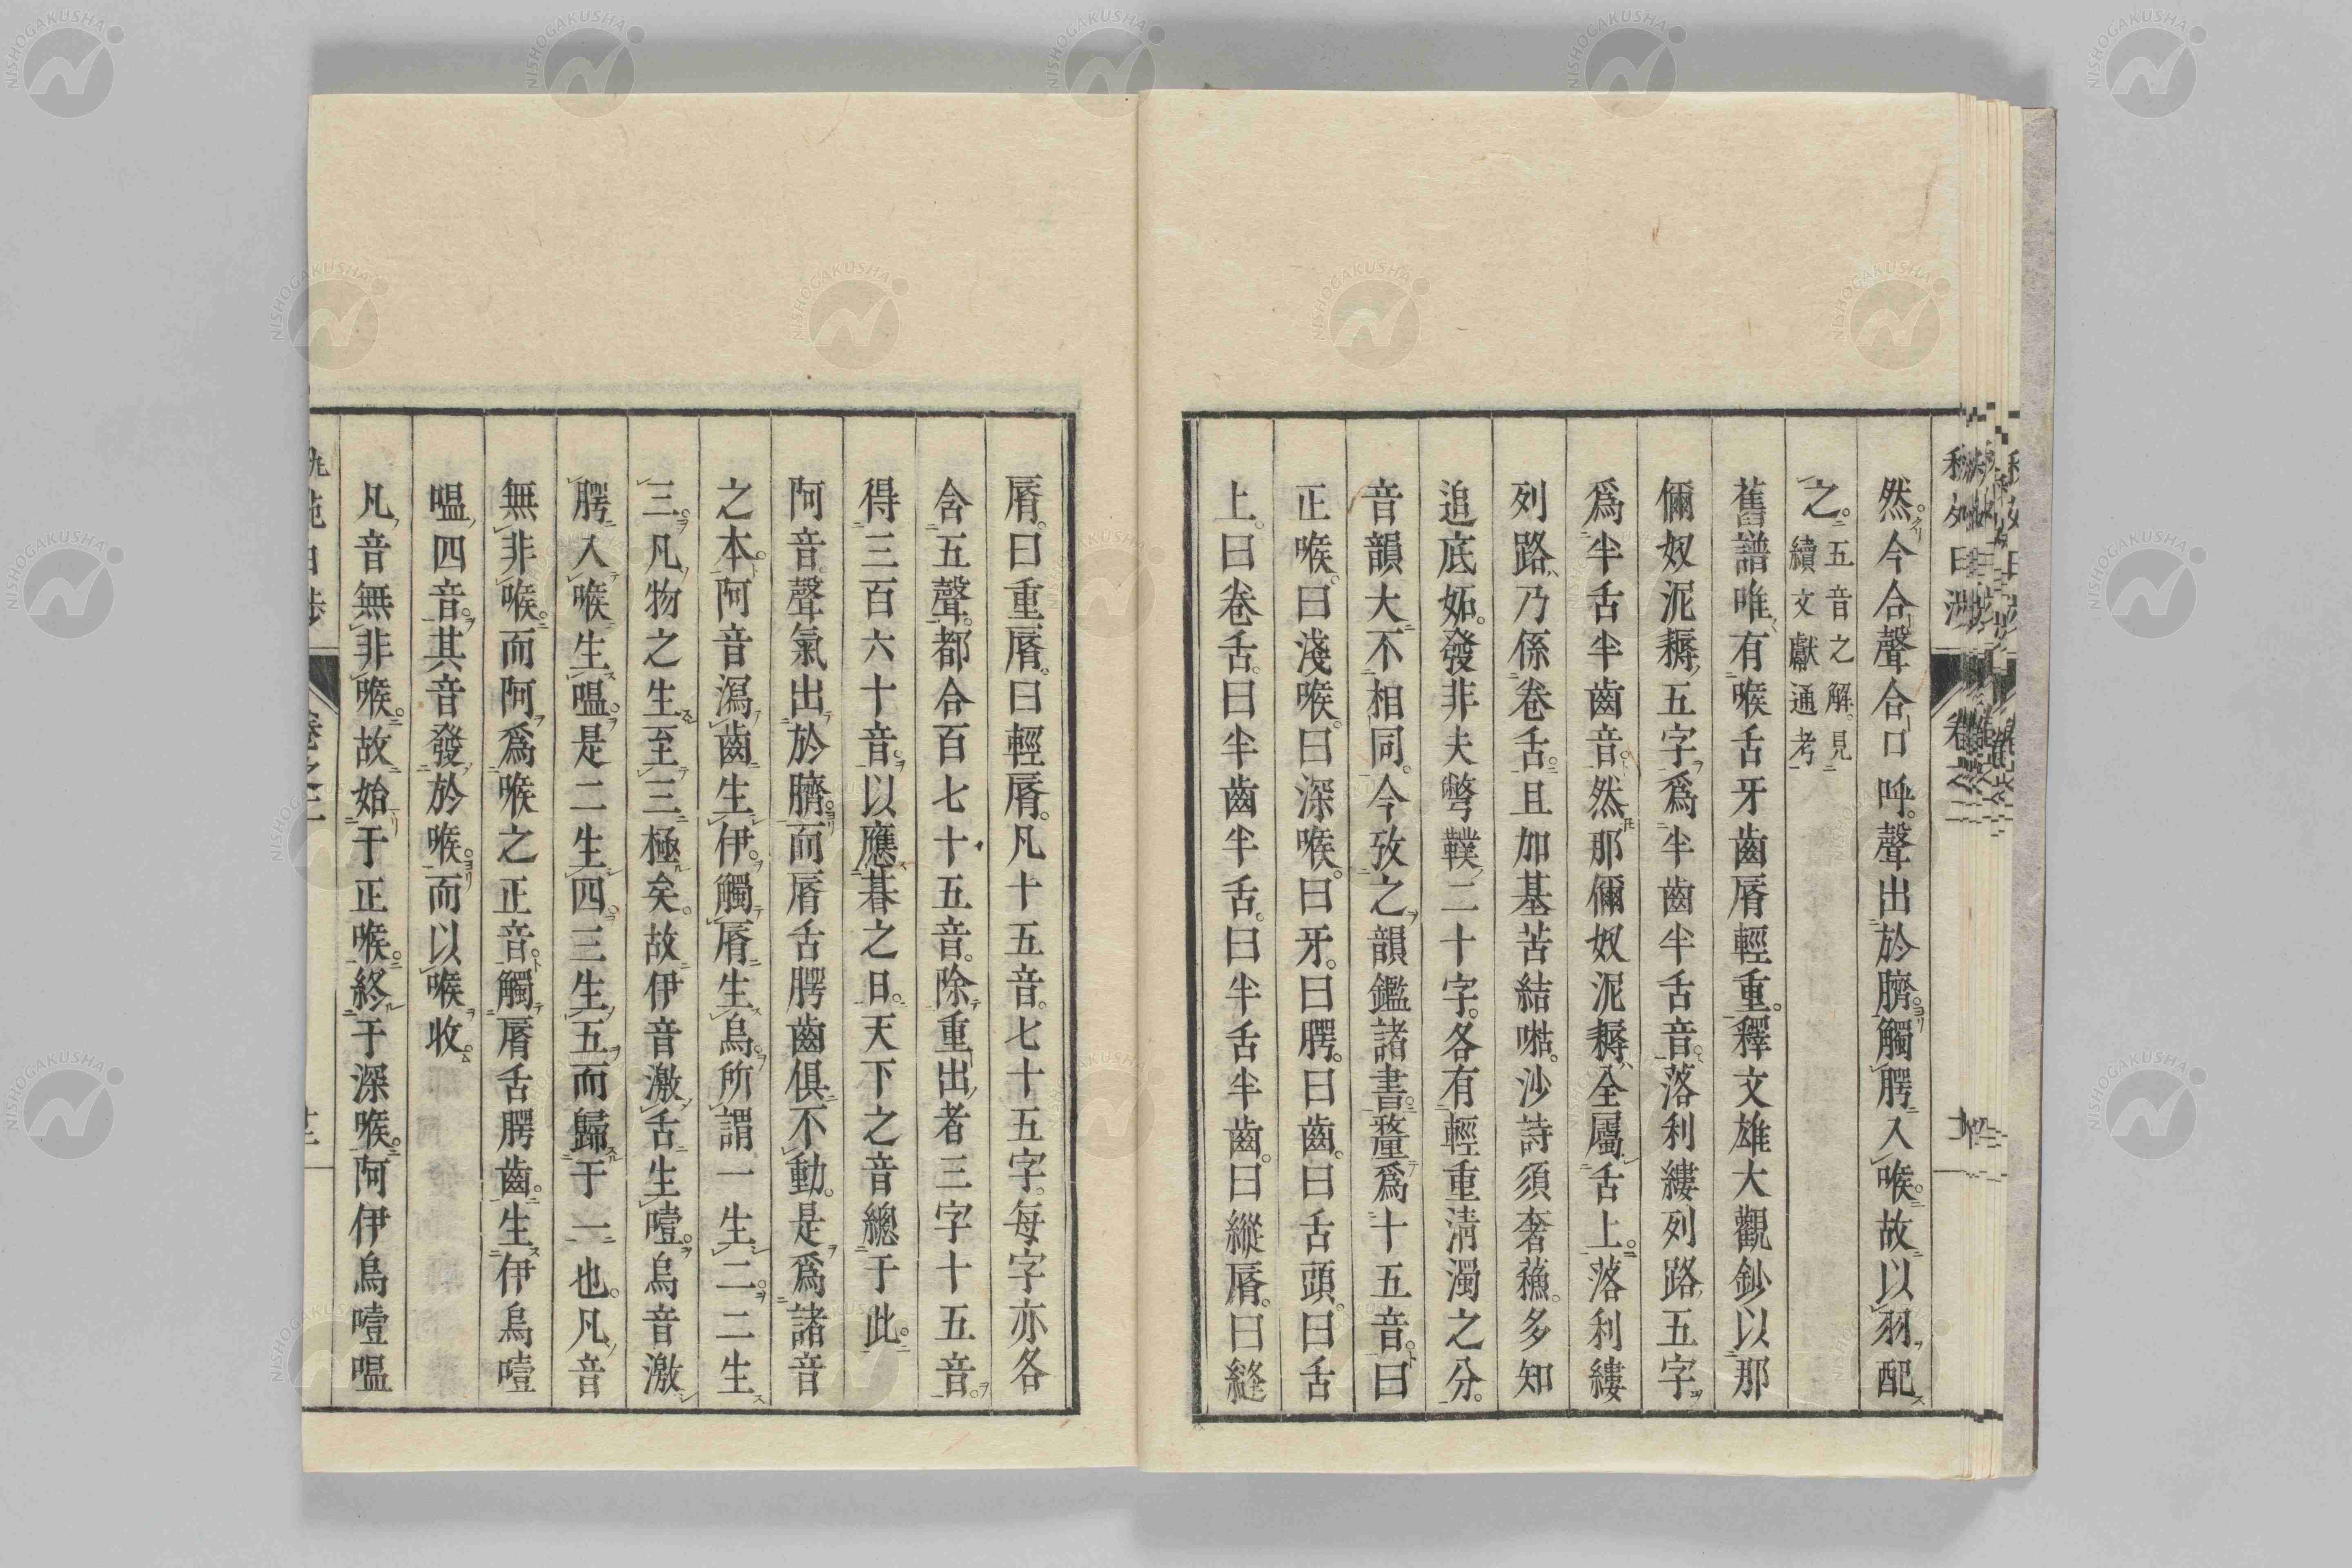 然今合聲合口呼。聲出於臍觸腭入喉。故以羽配
之。五音之解。見續文獻通考
舊譜唯有喉舌牙齒脣輕重。釋文雄大觀鈔以那
儞奴泥耨五字爲半齒半舌音。落利縷列路五字
爲半舌半齒音。然那儞奴泥耨全屬舌上。落利縷
列路乃係卷舌。且加基苦結㗖。沙詩須奢蘓。多知
追底妬。發非夫弊轐二十字。各有輕重清濁之分。
音韻大不相同。今攷之韻鑑諸書。釐爲十五音。曰
正喉。曰淺喉。曰深喉。曰牙。曰腭。曰齒。曰舌頭。曰舌
上。曰卷舌。曰半齒半舌。曰半舌半齒。曰縱脣。曰縫
脣。曰重脣。曰輕脣。凡十五音。七十五字。每字亦各
含五聲。都合百七十五音。除重出者三字十五音。
得三百六十音。以應朞之日。天下之音總于此。
阿音聲氣出於臍。而脣舌腭齒俱不動。是爲諸音
之本。阿音瀉齒生伊。觸脣生烏。所謂一生二。二生
三。凡物之生至三極矣。故伊音激舌生噎。烏音激
腭入喉生嗢。是二生四。三生五。而歸于一也。凡音
無非喉。而阿爲喉之正音。觸脣舌腭齒。生伊烏噎
嗢四音。其音發於喉。而以喉收。
凡音無非喉。故始于正喉。終于深喉。阿伊烏噎嗢